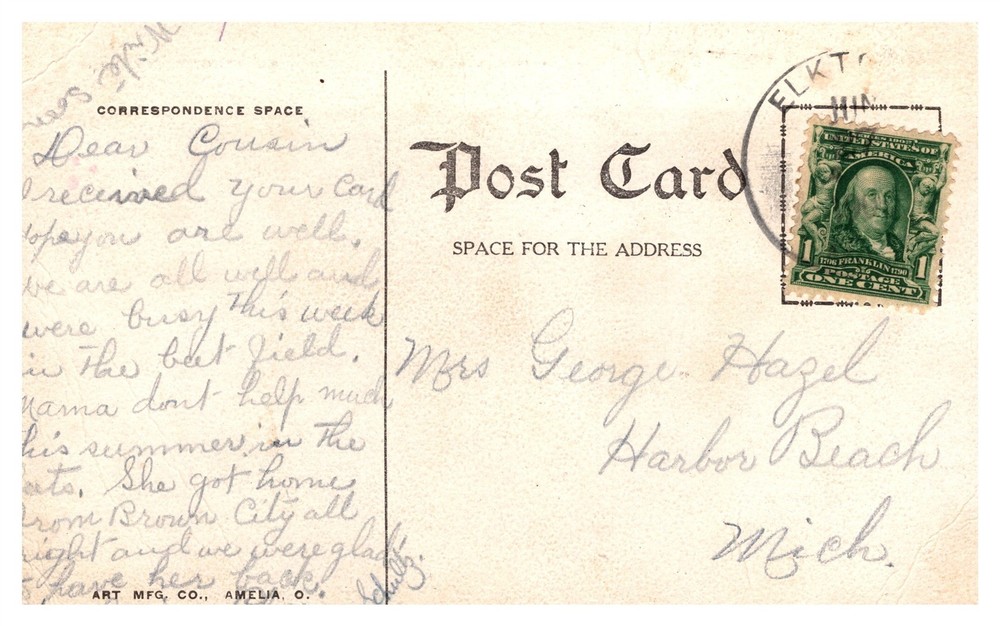 Write soon
CORRESPONDENCE SPACE
Dear Cousin
I received your card
Hope you are well.
we are all well and
were busy this week
in the beet field.
Mama dont help much
this summer in the
eats. She got home
from Brown City all
right and we were glad
to have her back.
Schultz.
ART MFG. CO., AMELIA, O.
Post Card
SPACE FOR THE ADDRESS
ELKT
JUN
SERIES 1902
UNITED STATES OF
AMERICA
1 1
1706 FRANKLIN 1790
POSTAGE
ONE CENT
Mrs George Hazel
Harbor Beach
Mich.